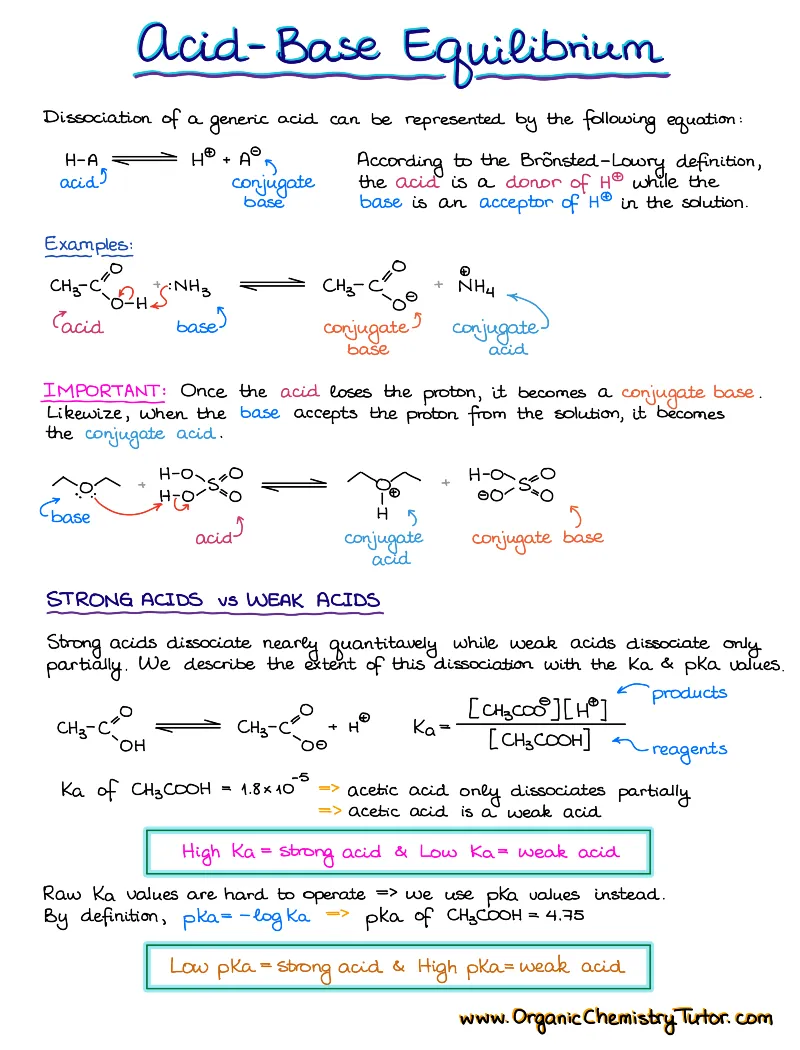 Acid-Base Equilibrium
Dissociation of a generic acid can be represented by the following equation:
H-A ⇌ H⊕ + A⊖
acid
conjugate
base
According to the Brõnsted-Lowry definition,
the acid is a donor of H⊕ while the
base is an acceptor of H⊕ in the solution.
Examples:
CH₃-C O O-H + :NH₃ ⇌ CH₃-C O O⊖ + ⊕NH₄
acid base conjugate conjugate
base acid
IMPORTANT: Once the acid loses the proton, it becomes a conjugate base.
Likewize, when the base accepts the proton from the solution, it becomes
the conjugate acid.
O + H-O H-O S O O ⇌ O⊕ H + H-O ⊖O S O O
base
acid conjugate conjugate base
acid
STRONG ACIDS vs WEAK ACIDS
Strong acids dissociate nearly quantitavely while weak acids dissociate only
partially. We describe the extent of this dissociation with the Ka & pKa values.
CH₃-C O OH ⇌ CH₃-C O O⊖ + H⊕
Ka = [CH₃COO⊖][H⊕]
[CH₃COOH]
products
reagents
Ka of CH₃COOH = 1.8×10⁻⁵ => acetic acid only dissociates partially
=> acetic acid is a weak acid
High Ka = strong acid & Low Ka = weak acid
Raw Ka values are hard to operate => we use pKa values instead.
By definition, pKa = -log Ka => pKa of CH₃COOH = 4.75
Low pKa = strong acid & High pKa = weak acid
www.OrganicChemistryTutor.com